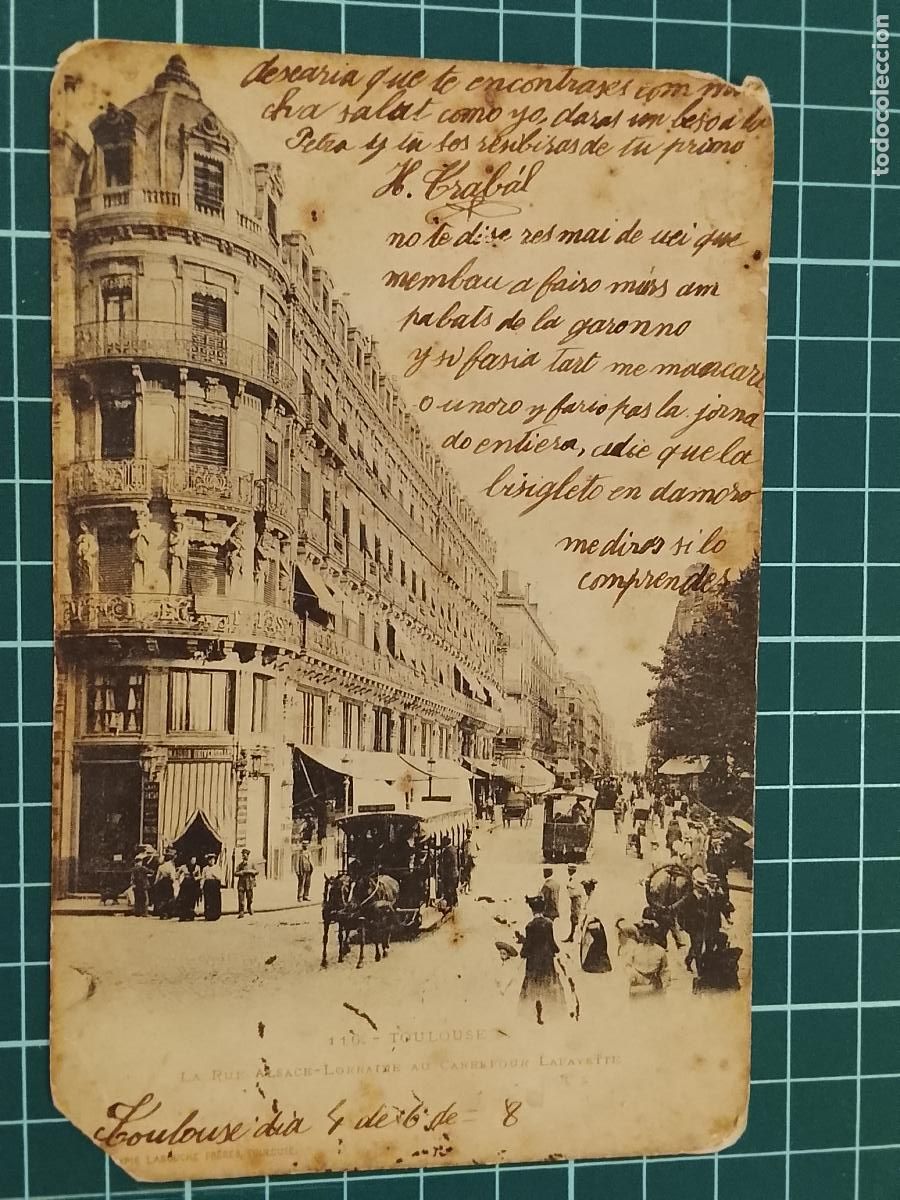 desearia que te encontrases com mu
cha salut como yo, daras un beso a la
Petra y tu los resibiras de tu primo
H. Trabál
no te dise res mai de uei que
membau a fairo mars am
pabats de la garonno
y si fasia tart me mancari
o unoro y fario pas la jorna
do entiera, adie que la
bisigleto en damoro
me diras si lo
comprendes
116. - TOULOUSE
LA RUE ALSACE-LORRAINE AU CARREFOUR LAFAYETTE
Toulouse dia 4 de 6 de 8
LABOUCHE FRÈRES, TOULOUSE
todocoleccion